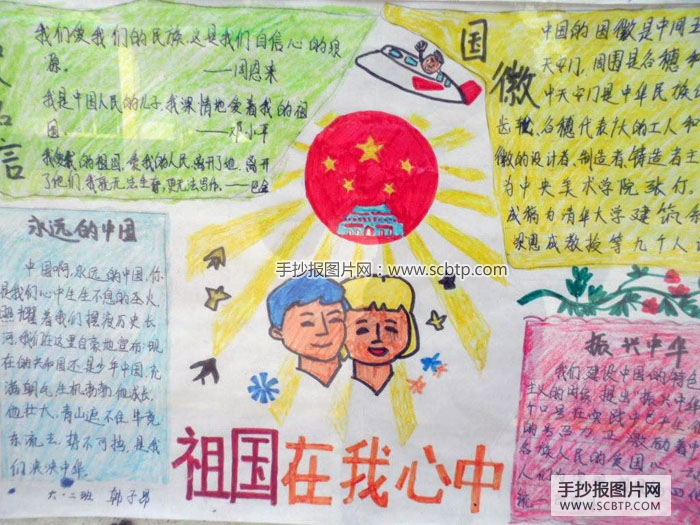 名言
我们爱我们的民族,这是我们自信心的泉
源。
——周恩来
我是中国人民的儿子,我深情地爱着我的祖
国。
——邓小平
我爱我的祖国,爱我的人民,离开了她,离开
了他们,我就无法生存,更无法写作。——巴金
国徽
中国的国徽是中间五
天安门,周围是谷穗和
中天安门是中华民族
齿轮、谷穗代表广大的工人和
徽的设计者、制造者、铸造者主
为中央美术学院张仃
成稿为清华大学建筑
梁思成教授等九个人
永远的中国
中国啊,永远的中国,你
是我们心中生生不息的圣火,
照耀着我们摆渡历史长
河,我们在这里自豪地宣布:现
在的共和国还是少年中国,充
满朝气,生机勃勃,他成长,
他壮大,青山遮不住,毕竟
东流去,势不可挡,是我
们泱泱中华。
六.二班 韩子昂
手抄报图片网:www.scbtp.com
振兴中华
我们建设中国的特色
主义的时候,提出"振兴中华
个口号在实践中已产生
的号召力,正激励着中
各族人民的爱国心
人们
祖国在我心中
手抄报图片网
WWW.SCBTP.COM